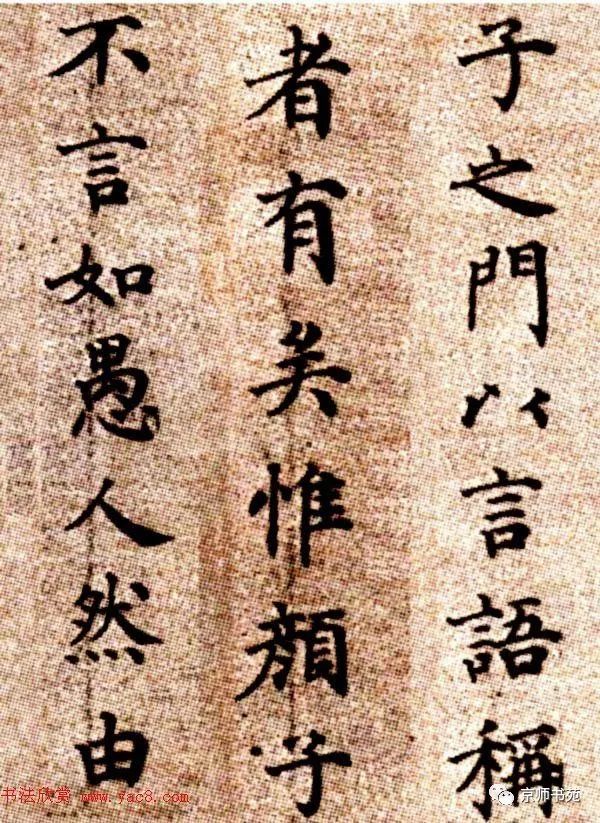 子之門以言語稱
者有矣惟顔子
不言如愚人然由
书法欣赏 www.yac8.com
京师书苑